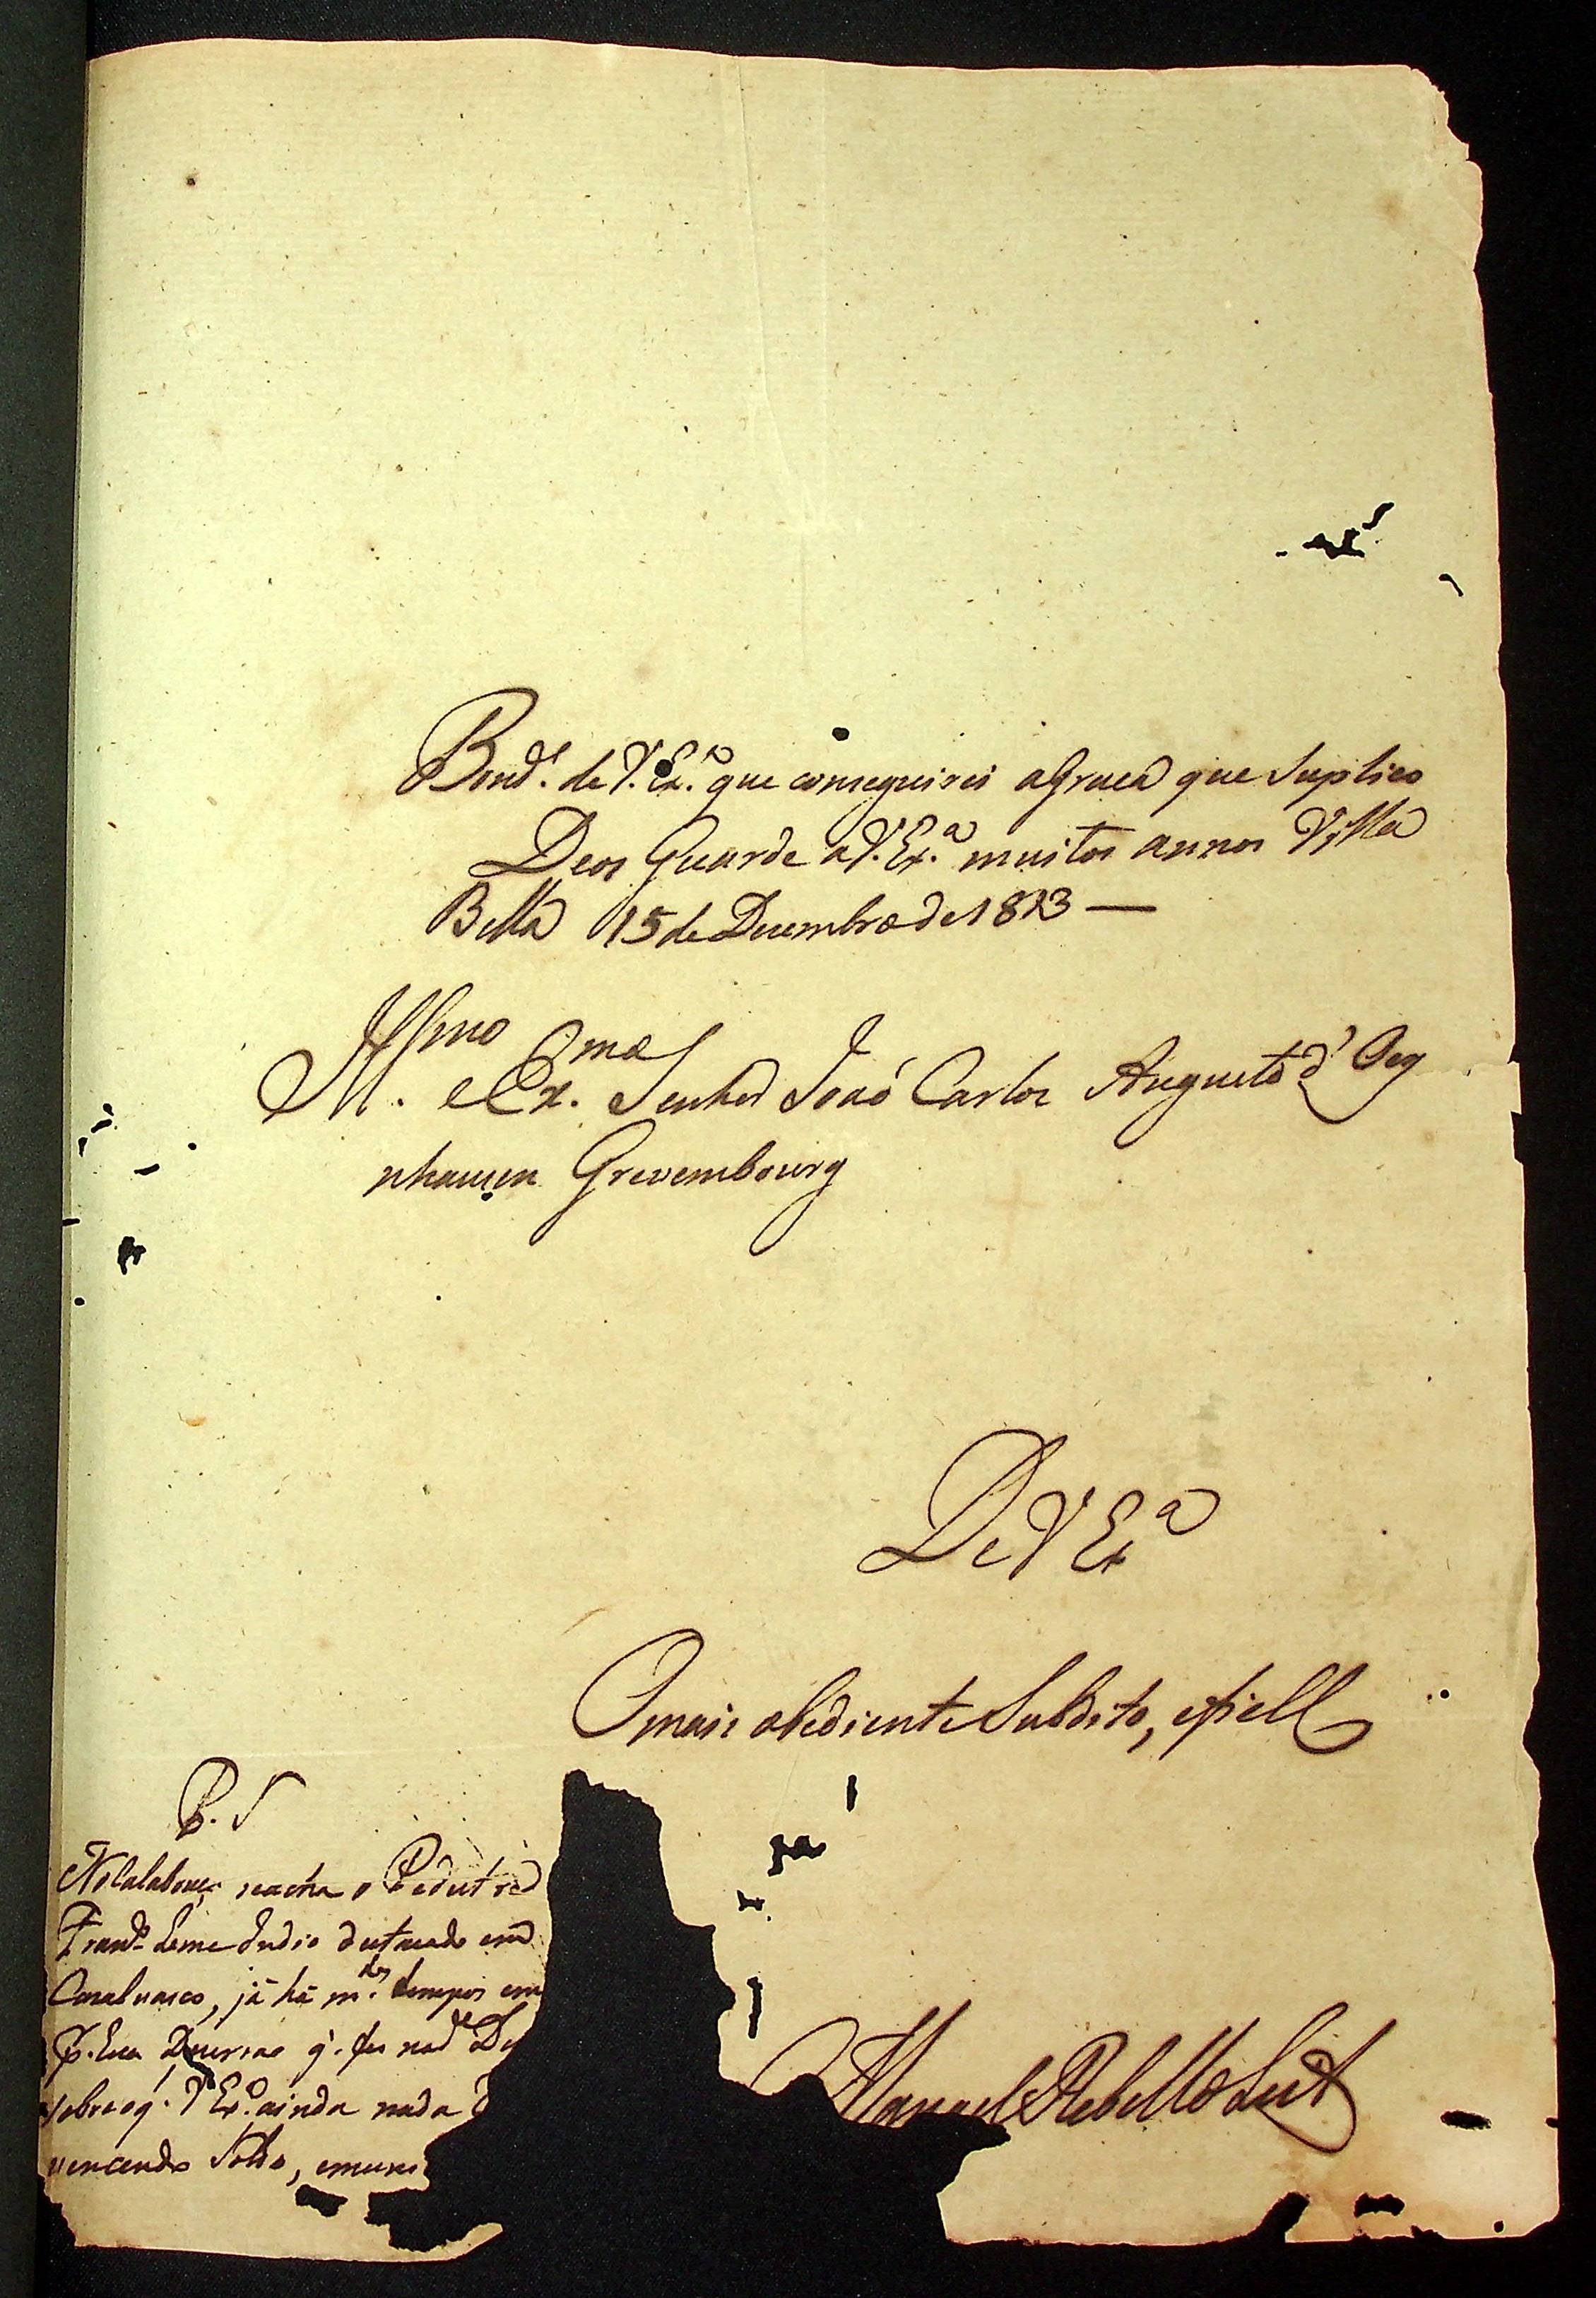 Bond.e de V. Ex.a que conseguirei a Graca que Suplico
Deos Guarde a V. Ex.a muitos annos Villa
Bella 15 de Decembro de 1813 —
Ill.mo e Ex.mo Senhor João Carlos Augusto d' Oey
nhausen Grevembourg
De V Ex.a
O mais obediente Subdito, e fiell
Manoel Rebello Leit
P. S
No Calabouço se acha o Pedestre
Fran.co Leme Indio destacado em
Casalvasco, já há m.tos tempos em
q. fes na d.e De
sobre o q. V Ex.a ainda nada
vencendo Soldo, e muni